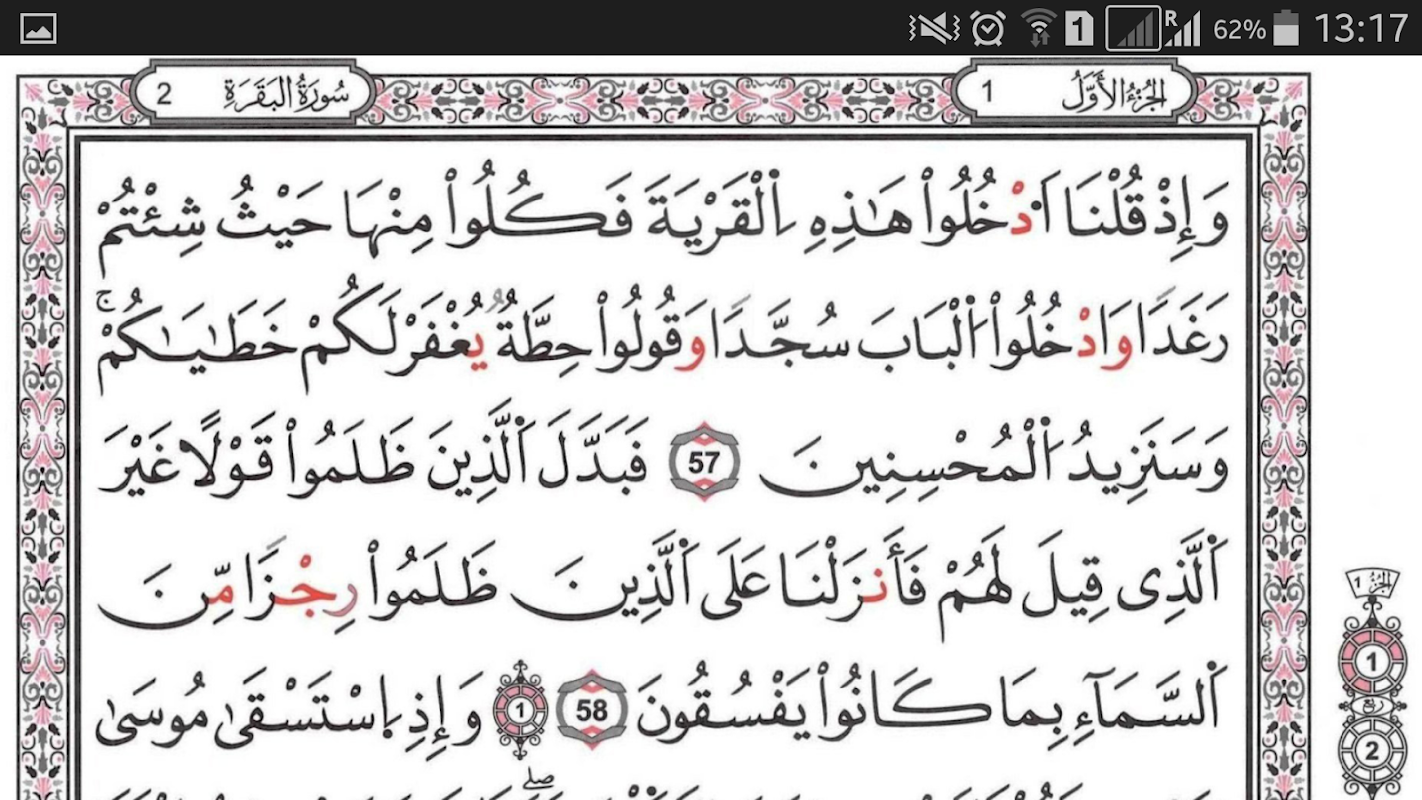 62% 13:17
سُورَةُ الْبَقَرَةِ 2
الجُزْءُ الأَوَّلُ 1
وَإِذْ قُلْنَا اَدْخُلُواْ هَٰذِهِ اِلْقَرْيَةَ فَكُلُواْ مِنْهَا حَيْثُ شِئْتُمْ
رَغَدًا وَادْخُلُواْ اَلْبَابَ سُجَّدًا وَقُولُواْ حِطَّةٌ يُغْفَرْ لَكُمْ خَطَٰيَٰكُمْۚ
وَسَنَزِيدُ اُلْمُحْسِنِينَ 57 فَبَدَّلَ اَلذِينَ ظَلَمُواْ قَوْلًا غَيْرَ
اَلَّذِى قِيلَ لَهُمْ فَأَنزَلْنَا عَلَى اَلَّذِينَ ظَلَمُواْ رِجْزًا مِّنَ
اَلسَّمَآءِ بِمَا كَانُواْ يَفْسُقُونَ 58 1 وَإِذِ اِسْتَسْقَىٰ مُوسَىٰ
صلے
الجزء 1
1
ربع
2